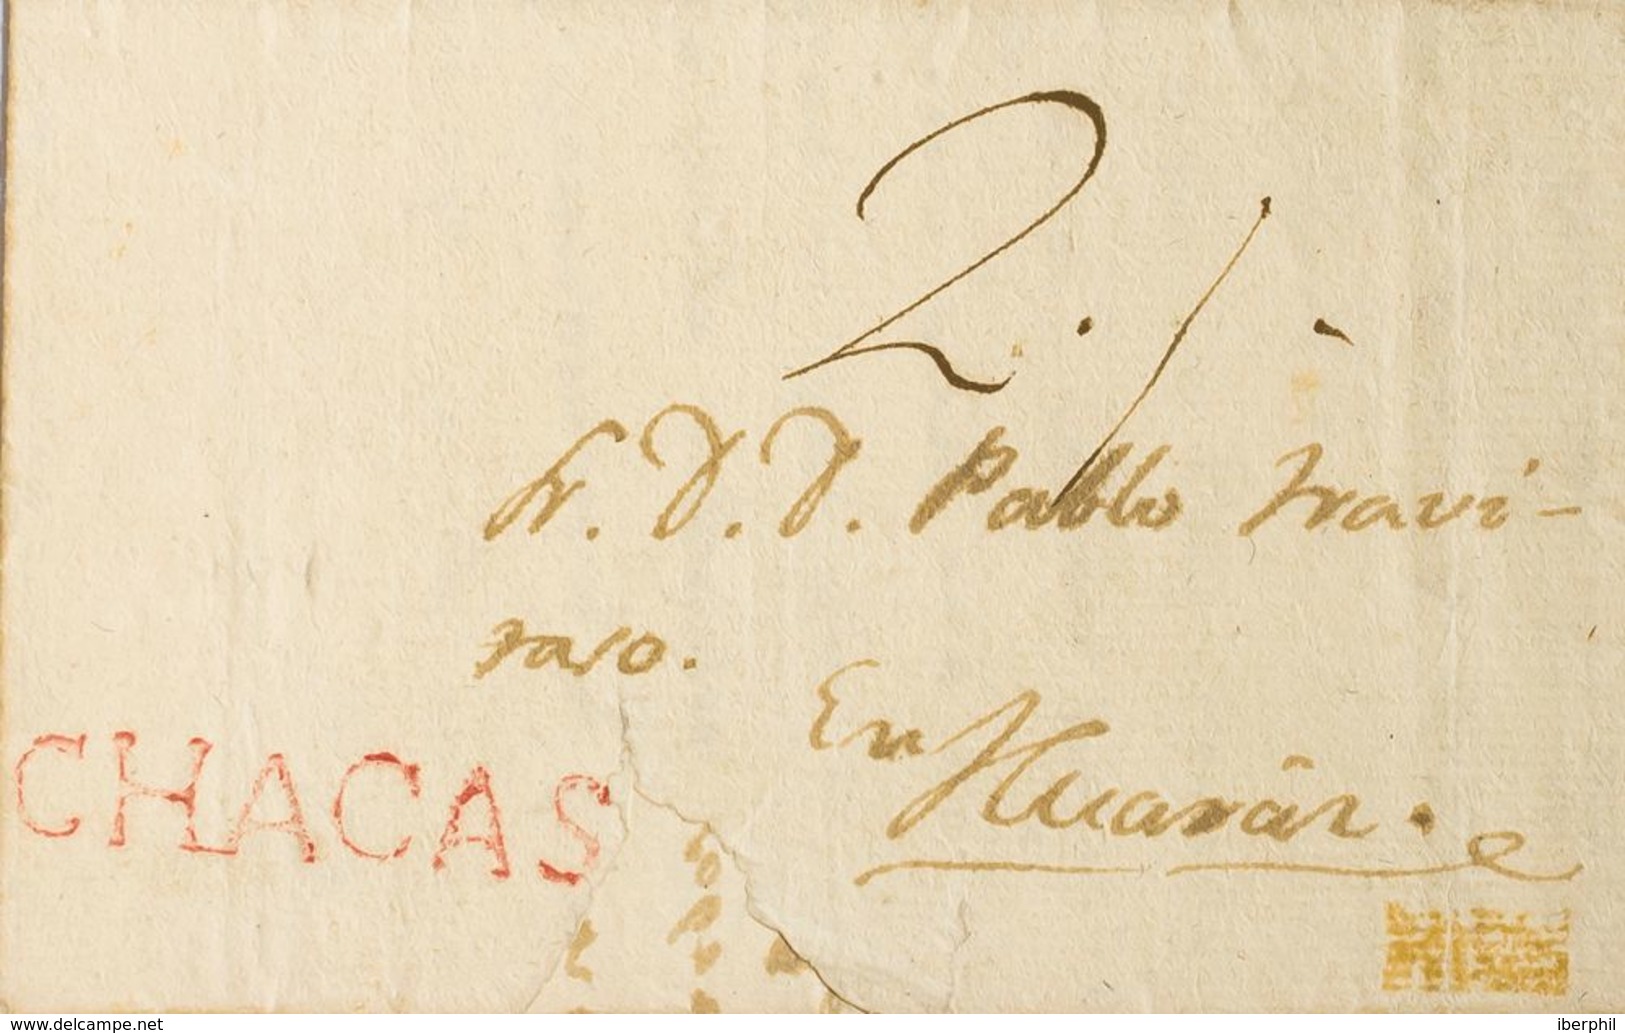 2./-
Sr. D. D. Pablo Travi-
raso.
En Huaráz.
CHACAS
www.delcampe.net
iberphil